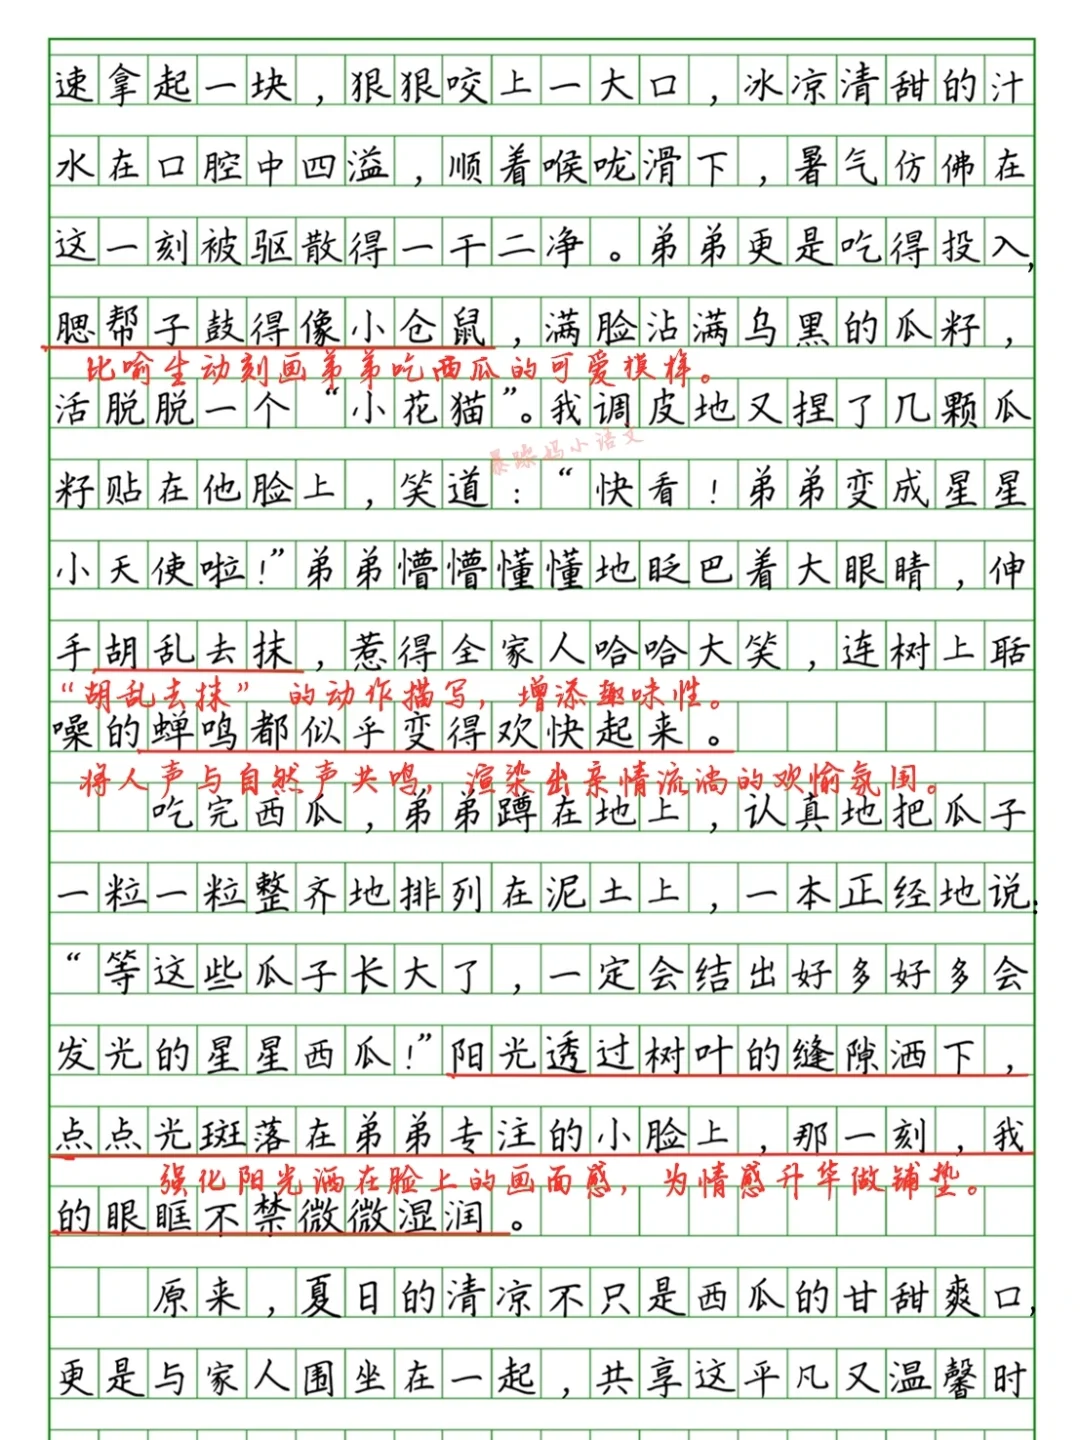 速拿起一块，狠狠咬上一大口，冰凉清甜的汁
水在口腔中四溢，顺着喉咙滑下，暑气仿佛在
这一刻被驱散得一干二净。弟弟更是吃得投入，
腮帮子鼓得像小仓鼠，满脸沾满乌黑的瓜籽，
比喻生动刻画弟弟吃西瓜的可爱模样。
活脱脱一个“小花猫”。我调皮地又捏了几颗瓜
暴躁妈小语文
籽贴在他脸上，笑道：“快看！弟弟变成星星
小天使啦！”弟弟懵懵懂懂地眨巴着大眼睛，伸
手胡乱去抹，惹得全家人哈哈大笑，连树上聒
“胡乱去抹”的动作描写，增添趣味性。
噪的蝉鸣都似乎变得欢快起来。
将人声与自然声共鸣，渲染出亲情流淌的欢愉氛围。
吃完西瓜，弟弟蹲在地上，认真地把瓜子
一粒一粒整齐地排列在泥土上，一本正经地说：
“等这些瓜子长大了，一定会结出好多好多会
发光的星星西瓜！”阳光透过树叶的缝隙洒下，
点点光斑落在弟弟专注的小脸上，那一刻，我
强化阳光洒在脸上的画面感，为情感升华做铺垫。
的眼眶不禁微微湿润。
原来，夏日的清凉不只是西瓜的甘甜爽口，
更是与家人围坐在一起，共享这平凡又温馨时